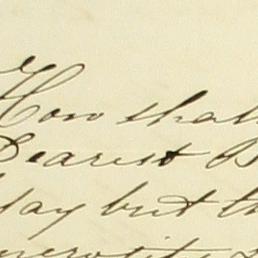 How shall
Dearest B
day but th